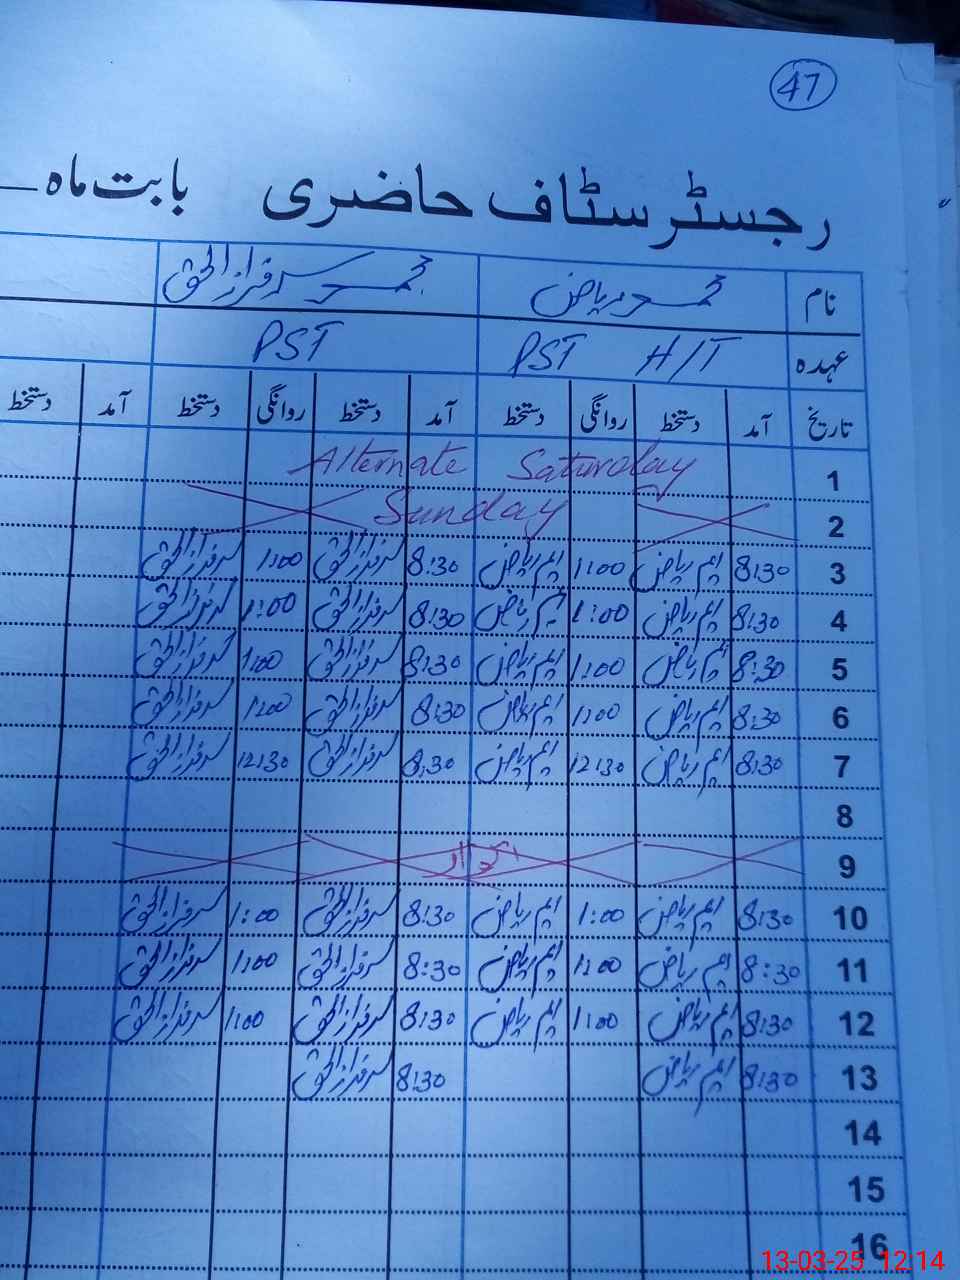 47
رجسٹر سٹاف حاضری بابت ماہ
نام محمد ریاض محمد سرفراز الحق
عہدہ PST H/T PST
تاریخ آمد دستخط روانگی دستخط آمد دستخط روانگی دستخط آمد دستخط
1 Alternate Saturday
2 Sunday
3 8:30 ایم ریاض 1:00 ایم ریاض 8:30 سرفراز الحق 1:00 سرفراز الحق
4 8:30 ایم ریاض 1:00 ایم ریاض 8:30 سرفراز الحق 1:00 سرفراز الحق
5 8:30 ایم ریاض 1:00 ایم ریاض 8:30 سرفراز الحق 1:00 سرفراز الحق
6 8:30 ایم ریاض 1:00 ایم ریاض 8:30 سرفراز الحق 1:00 سرفراز الحق
7 8:30 ایم ریاض 12:30 ایم ریاض 8:30 سرفراز الحق 12:30 سرفراز الحق
8
9 اتوار
10 8:30 ایم ریاض 1:00 ایم ریاض 8:30 سرفراز الحق 1:00 سرفراز الحق
11 8:30 ایم ریاض 1:00 ایم ریاض 8:30 سرفراز الحق 1:00 سرفراز الحق
12 8:30 ایم ریاض 1:00 ایم ریاض 8:30 سرفراز الحق 1:00 سرفراز الحق
13 8:30 ایم ریاض 8:30 سرفراز الحق
14
15
16
13-03-25 12:14